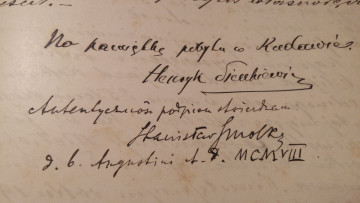 Na pamiątkę pobytu w Radawie.
Henryk Sienkiewicz
Autentyczność podpisu stwierdzam:
Stanisław Smolka
d. 6. Augustini A. D. MCMVIII.